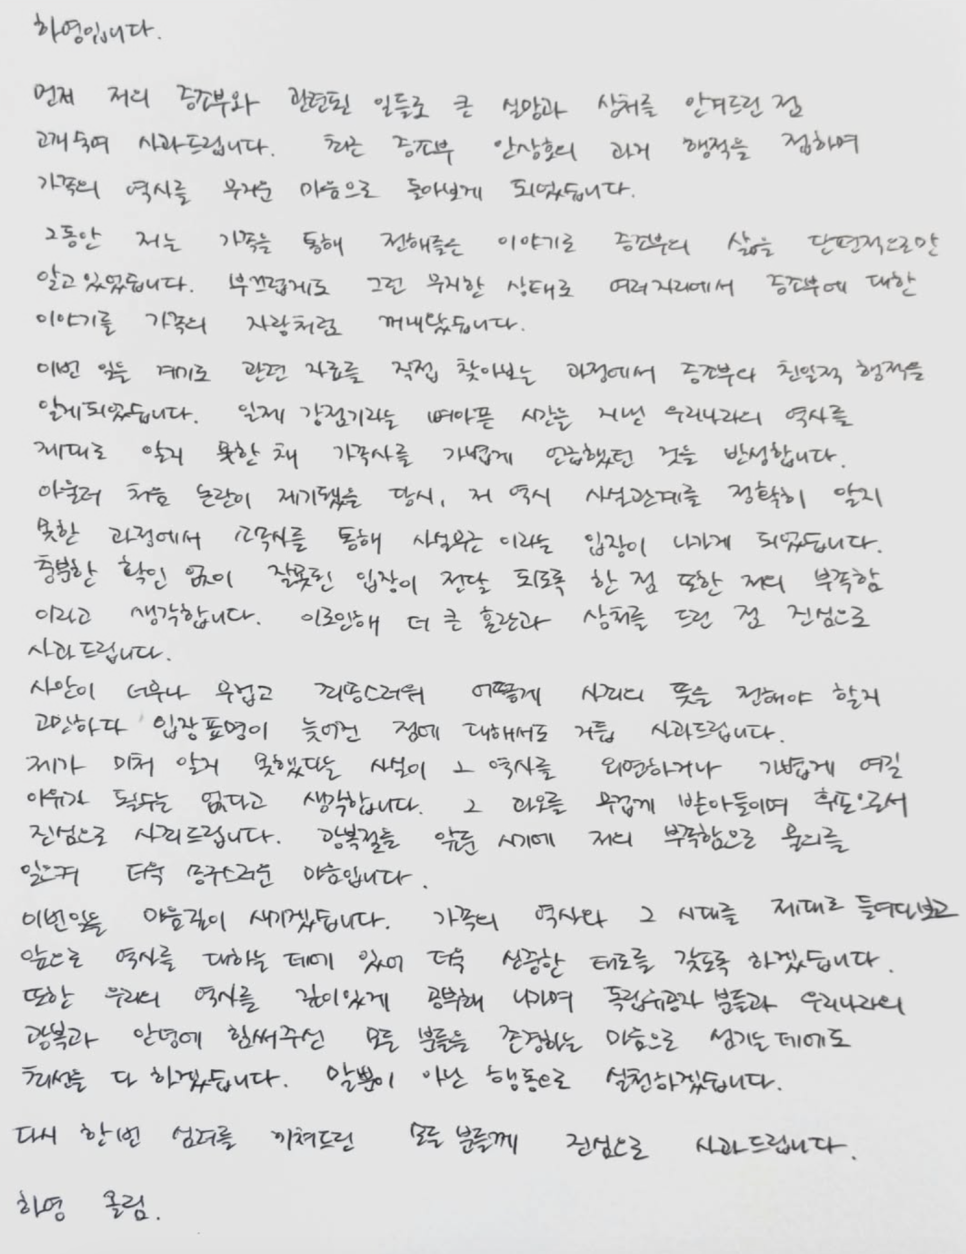 하영입니다.
먼저 저의 증조부와 관련된 일들로 큰 실망과 상처를 안겨드린 점
고개숙여 사과드립니다. 최근 증조부 안상호의 과거 행적을 접하며
가족의 역사를 무거운 마음으로 돌아보게 되었습니다.
그동안 저는 가족을 통해 전해들은 이야기로 증조부의 삶을 단편적으로만
알고 있었습니다. 부끄럽게도 그런 무지한 상태로 여러 자리에서 증조부에 대한
이야기를 가족의 자랑처럼 꺼내왔습니다.
이번 일을 계기로 관련 자료를 직접 찾아보는 과정에서 증조부의 친일적 행적을
알게되었습니다. 일제 강점기라는 뼈아픈 시간을 지낸 우리나라의 역사를
제대로 알지 못한 채 가족사를 가볍게 언급했던 것을 반성합니다.
아울러 처음 논란이 제기됐을 당시, 저 역시 사실관계를 정확히 알지
못한 과정에서 소속사를 통해 사실무근 이라는 입장이 나가게 되었습니다.
충분한 확인 없이 잘못된 입장이 전달 되도록 한 점 또한 저의 부족함
이라고 생각합니다. 이로인해 더 큰 혼란과 상처를 드린 점 진심으로
사과드립니다.
사안이 너무나 무겁고 죄송스러워 어떻게 사죄의 뜻을 전해야 할지
고민하다 입장표명이 늦어진 점에 대해서도 거듭 사과드립니다.
제가 미처 알지 못했다는 사실이 그 역사를 외면하거나 가볍게 여길
이유가 될수는 없다고 생각합니다. 그 과오를 무겁게 받아들이며 후손으로서
진심으로 사죄드립니다. 광복절을 앞둔 시기에 저의 부족함으로 물의를
일으켜 더욱 송구스러운 마음입니다.
이번일을 마음깊이 새기겠습니다. 가족의 역사와 그 시대를 제대로 들여다보고
앞으로 역사를 대하는 데에 있어 더욱 신중한 태도를 갖도록 하겠습니다.
또한 우리의 역사를 깊이있게 공부해 나가며 독립유공자 분들과 우리나라의
광복과 안녕에 힘써주신 모든 분들을 존경하는 마음으로 섬기는데에도
최선을 다 하겠습니다. 말뿐이 아닌 행동으로 실천하겠습니다.
다시 한번 심려를 끼쳐드린 모든 분들께 진심으로 사과드립니다.
하영 올림.